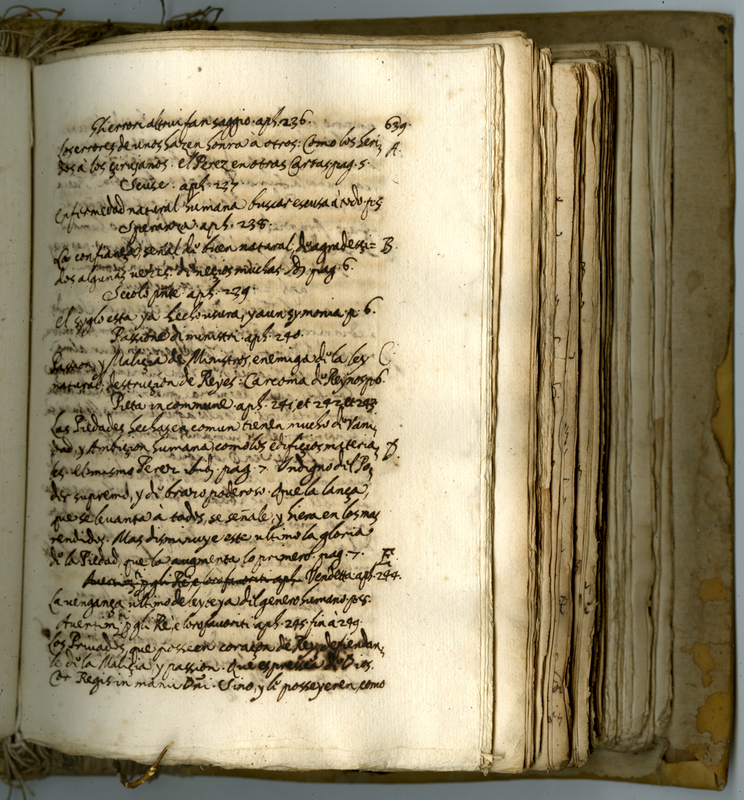 Gl'errori altrui fan saggio. aph. 236. 639.
Los errores de unos hazen honra à otros: Como los heri-
dos à los cirujanos. el Perez en otras Cartas pag. 5. A.
Scuse. aph. 237
Enfermedad natural humana buscar escusa à todo. p. 5
Speranza. aph. 238.
La confiança señal de buen natural, de agradesci- B.
dos algunas vezes: de necios muchas. pag. 6.
Secolo pnte. aph. 239.
el siglo esta ya hecho usura, y aun symonia. p. 6.
Passione di ministri. aph. 240.
Passion, y Malicia de Ministros, enemiga de la ley C.
natural, destruición de Reyes: Carcoma de Reynos p. 6
Pieta in commune. aph. 241 et 242 et 243
Las Piedades hechas en comun tienen mucho de Vani-
dad, y Ambicion humana, como los edificios materia- D.
les. el mismo Perez ibid. pag. 7. Indigno del Po-
der supremo, y de brazo poderoso. Que la lança,
que se levanta à todos, se señale, y hiera en los mas
rendidos. Mas disminuye este ultimo la gloria
de la Piedad, que la augmenta lo primero. pag. 7. E.
Vendetta aph. 244.
La vengança ultimo deleyte ya del genero humano.
Avertim. p gli Rè, e loro favoriti. aph. 245. fin a 249.
Los Privados, que posseen coraçon de Rey defiendan-
le de la Malicia y passion. Que es prenda de Dios.
Cor Regis in manu Dñi. Sino, y le posseyeren como